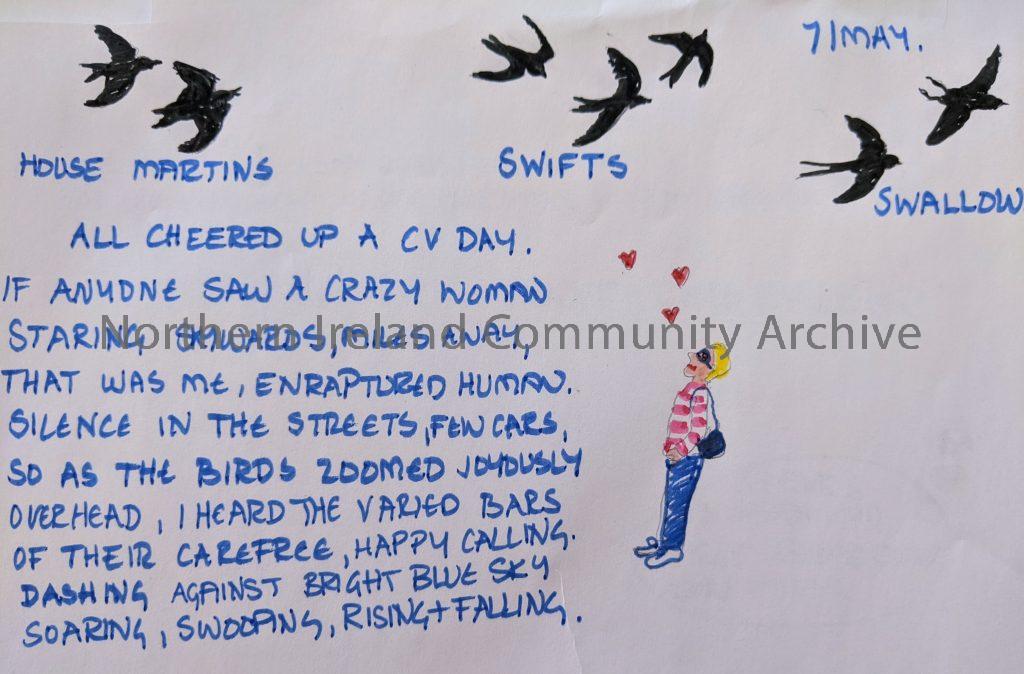 7/MAY.
HOUSE MARTINS
SWIFTS
SWALLOW
ALL CHEERED UP A CV DAY.
IF ANYONE SAW A CRAZY WOMAN
STARING SKYWARDS, MILES AWAY,
THAT WAS ME, ENRAPTURED HUMAN.
SILENCE IN THE STREETS, FEW CARS,
SO AS THE BIRDS ZOOMED JOYOUSLY
OVERHEAD, I HEARD THE VARIED BARS
OF THEIR CAREFREE, HAPPY CALLING.
DASHING AGAINST BRIGHT BLUE SKY
SOARING, SWOOPING, RISING + FALLING.
Northern Ireland Community Archive